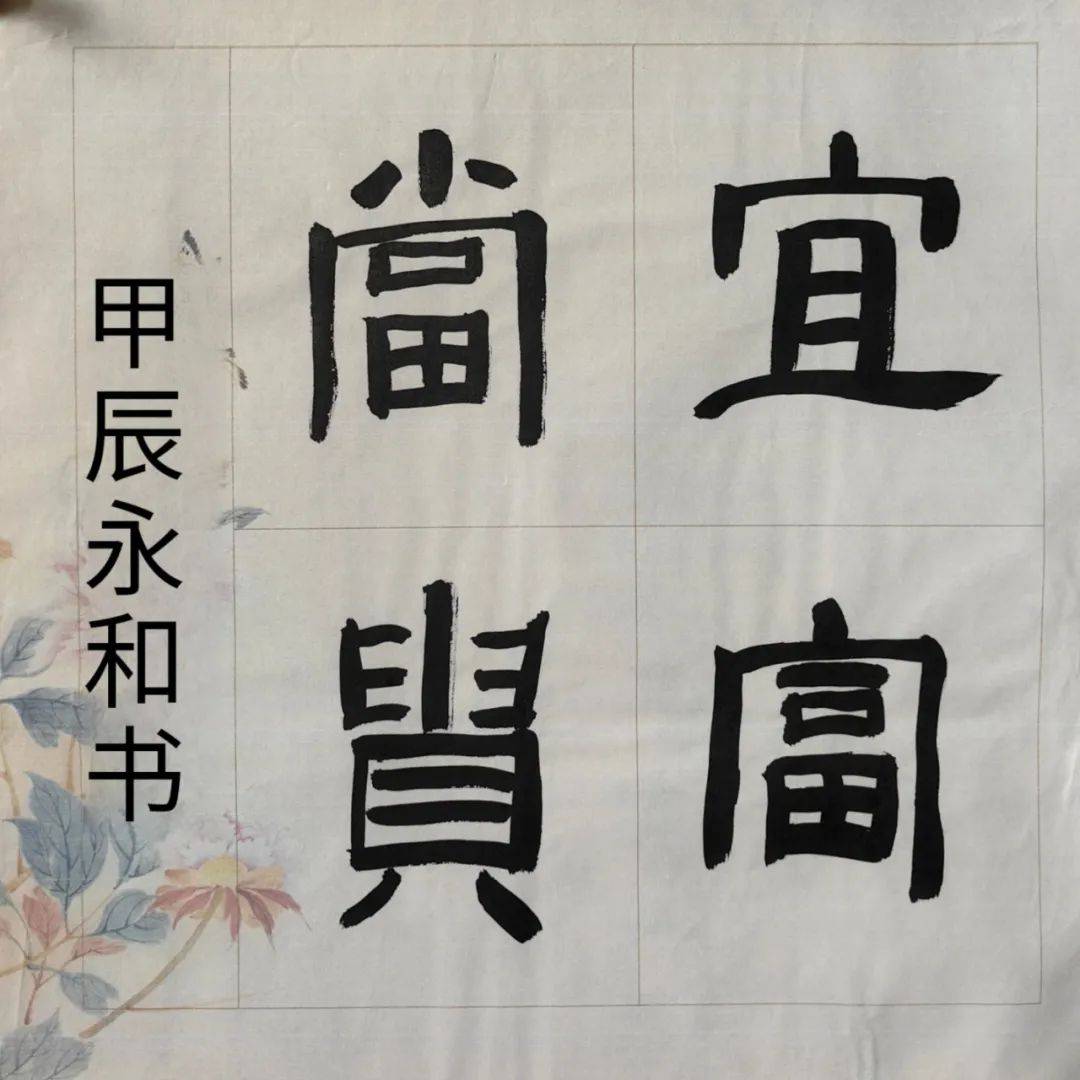 宜富
當貴
甲辰永和书